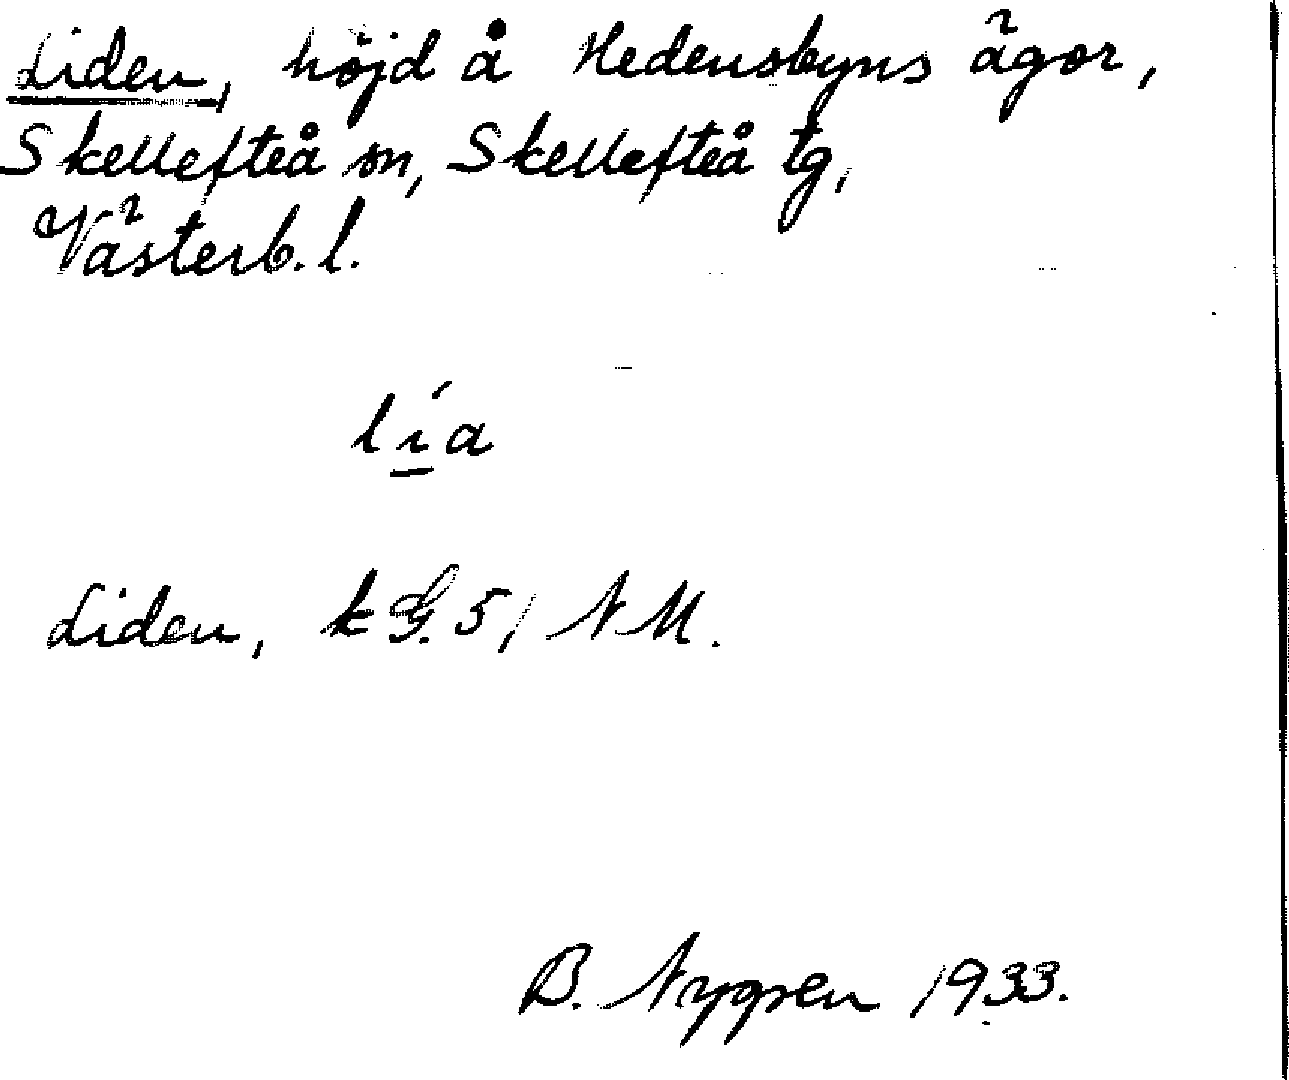 Liden, höjd å Hedensbyns ägor,
Skellefteå sn, Skellefteå tg,
Västerb. l.
lía
Liden, k G. 5, NM.
B. Nygren 1933.